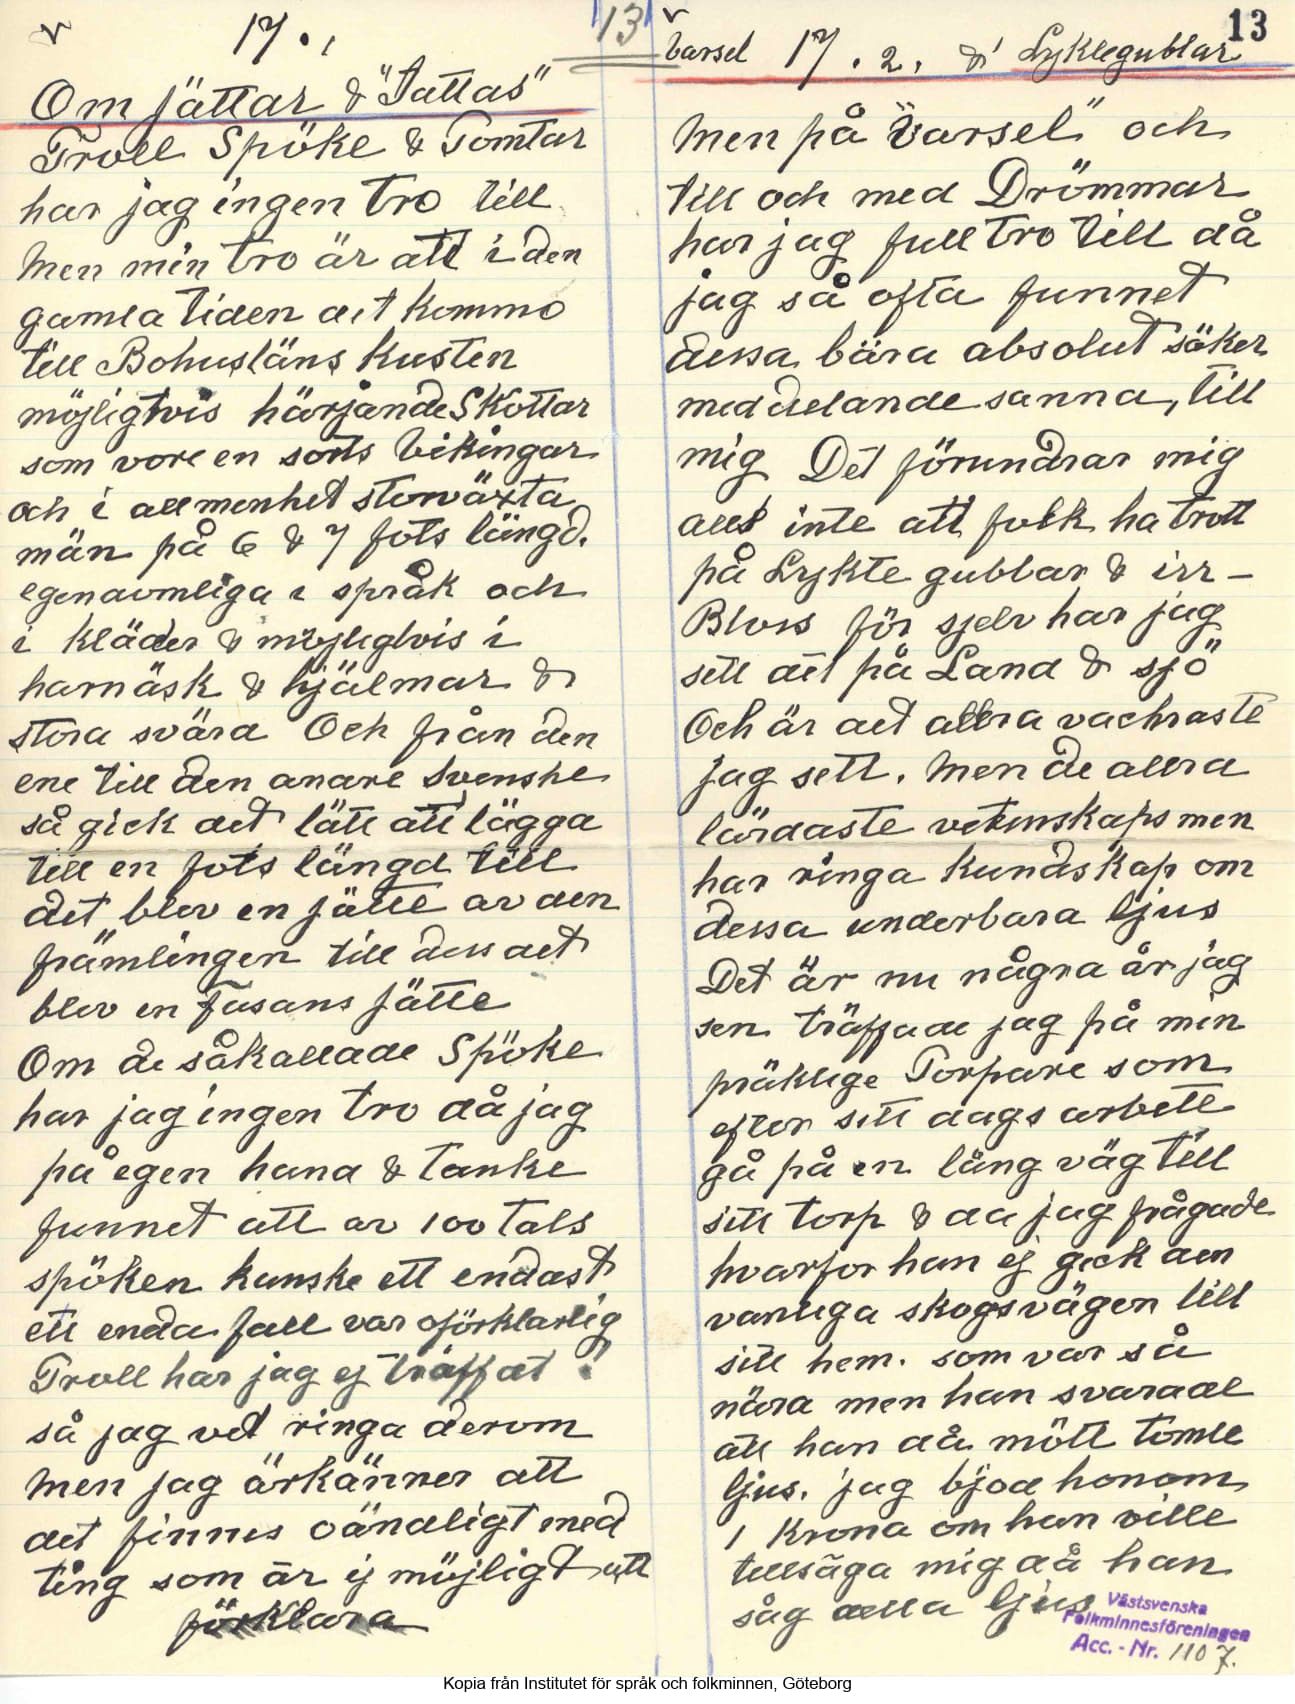 v 17.1
13
Om jättar & "Jattas"
Troll Spöke & Tomtar
har jag ingen tro till
Men min tro är att i den
gamla tiden det kommo
till Bohusläns Kusten
möjligtvis härjande Skottar
som vore en sorts Vikingar
och i allmenhet storväxta
män på 6 & 7 fots längd.
egenavmliga i språk och
i kläder & möjligtvis i
harnäsk & hjälmar &
stora svärd Och från den
ene till den anare Svenske
så gick det lätt att lägga
till en fots längd till
det blev en jätte av den
främlingen till dess det
blev en Fasans Jätte
Om de såkallade Spöke
har jag ingen tro då jag
på egen hand & tanke
funnet att av 100 tals
spöken kanske ett endast
ett enda fall var oförklarlig
Troll har jag ej träffat !
så jag vet ringa derom
Men jag ärkänner att
det finnes oändligt med
ting som är ej möjligt att
förklara
v
13
Varsel 17.2. & Lyktegubbar
Men på "Varsel" och
till och med Drömmar
har jag full tro till då
jag så ofta funnet
dessa bära absolut säker
meddelande sanna, till
mig Det förundrar mig
alls inte att folk ha trott
på Lykte gubbar & irr-
Bloss för sjelv har jag
sett det på Land & sjö
Och är det allra vackraste
jag sett. Men de allra
lärdaste vetenskapsmen
har ringa kundskap om
dessa underbara ljus
Det är nu några år jag
sen träffade jag på min
präktige Torpare som
efter sitt dags arbete
gå på en läng väg till
sitt torp & då jag frågade
hvarför han ej gick den
vanliga skogsvägen till
sitt hem. som var så
nära men han svarade
att han då mött tomte
ljus. jag bjöd honom
1 Krona om han ville
tillsäga mig då han
såg detta ljus
Västsvenska
Folkminnesföreningen
Acc. - Nr. 1107.
Kopia från Institutet för språk och folkminnen, Göteborg